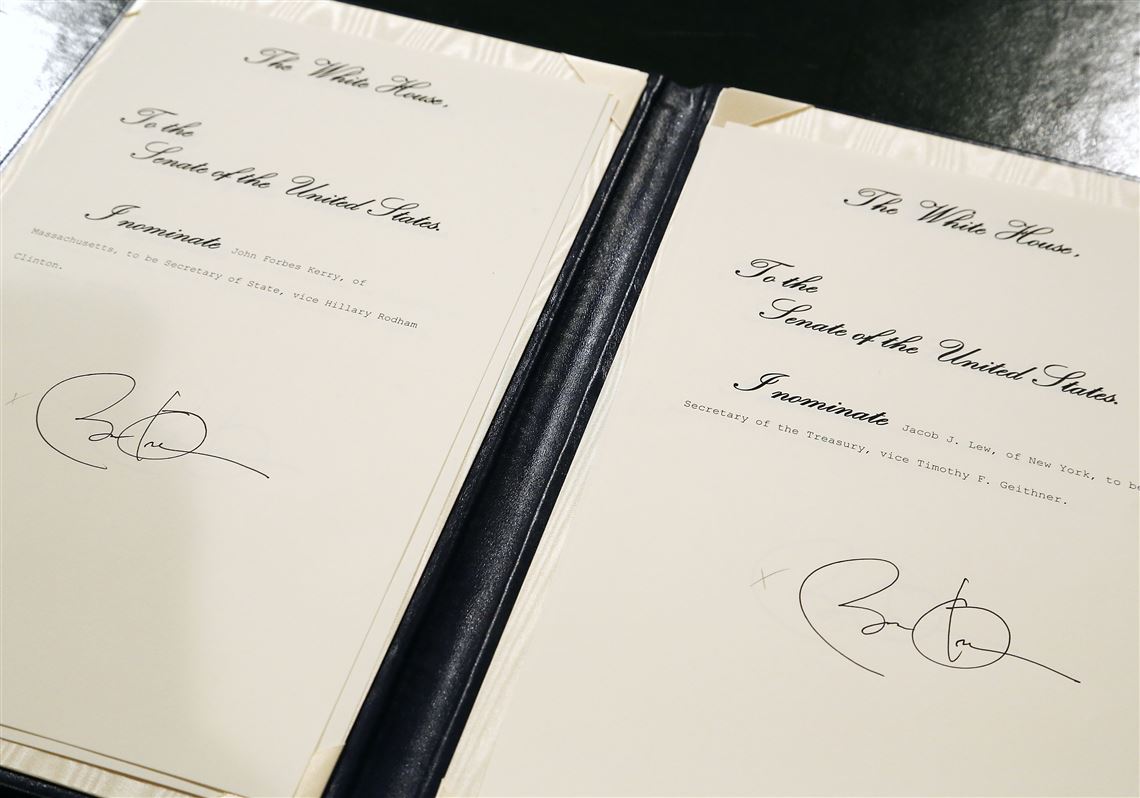 The White House,
To the
Senate of the United States.
I nominate John Forbes Kerry, of
Massachusetts, to be Secretary of State, vice Hillary Rodham
Clinton.
x
The White House,
To the
Senate of the United States.
I nominate Jacob J. Lew, of New York, to be
Secretary of the Treasury, vice Timothy F. Geithner.
x